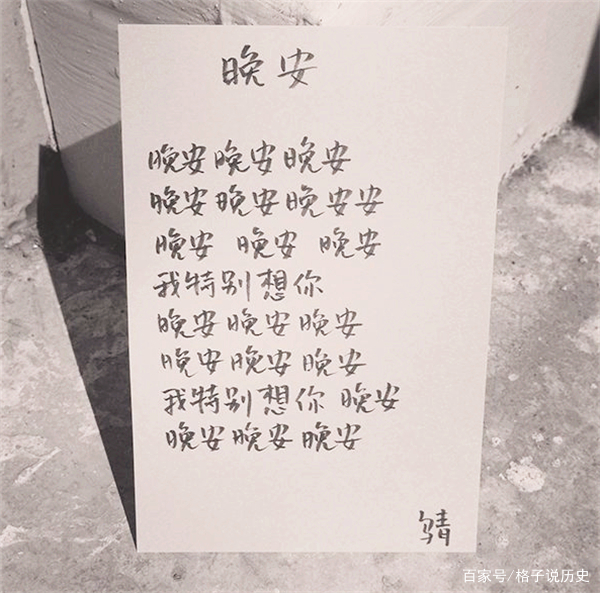 晚安
晚安晚安晚安
晚安晚安晚安安
晚安 晚安 晚安
我特别想你
晚安晚安晚安
晚安晚安晚安
我特别想你 晚安
晚安晚安晚安
百家号/格子说历史